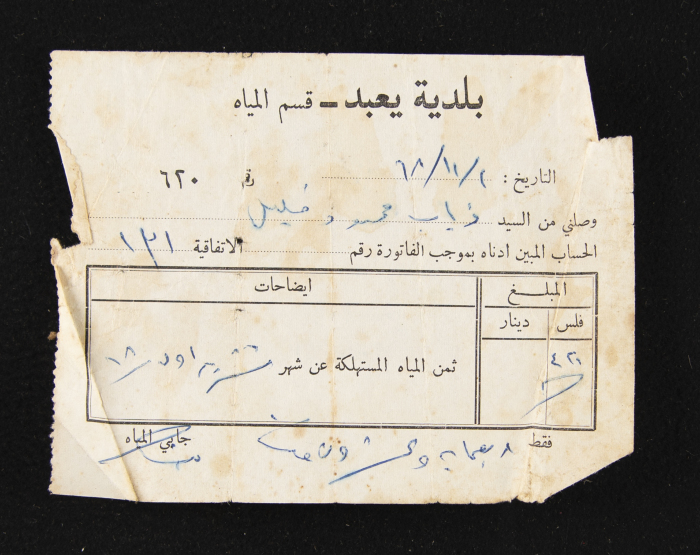 بلدية يعبد ـ قسم المياه
التاريخ : ٦٨/١١/٢ رقم ٦٢٠
وصلني من السيد ذياب محمود خليل
الحساب المبين ادناه بموجب الفاتورة رقم الاتفاقية ١٣١
المبلغ ايضاحات
فلس دينار
٤٢٠ ثمن المياه المستهلكة عن شهر تشرين اول ٦٨
فقط اربعماية وعشرون فلسا جابي المياه